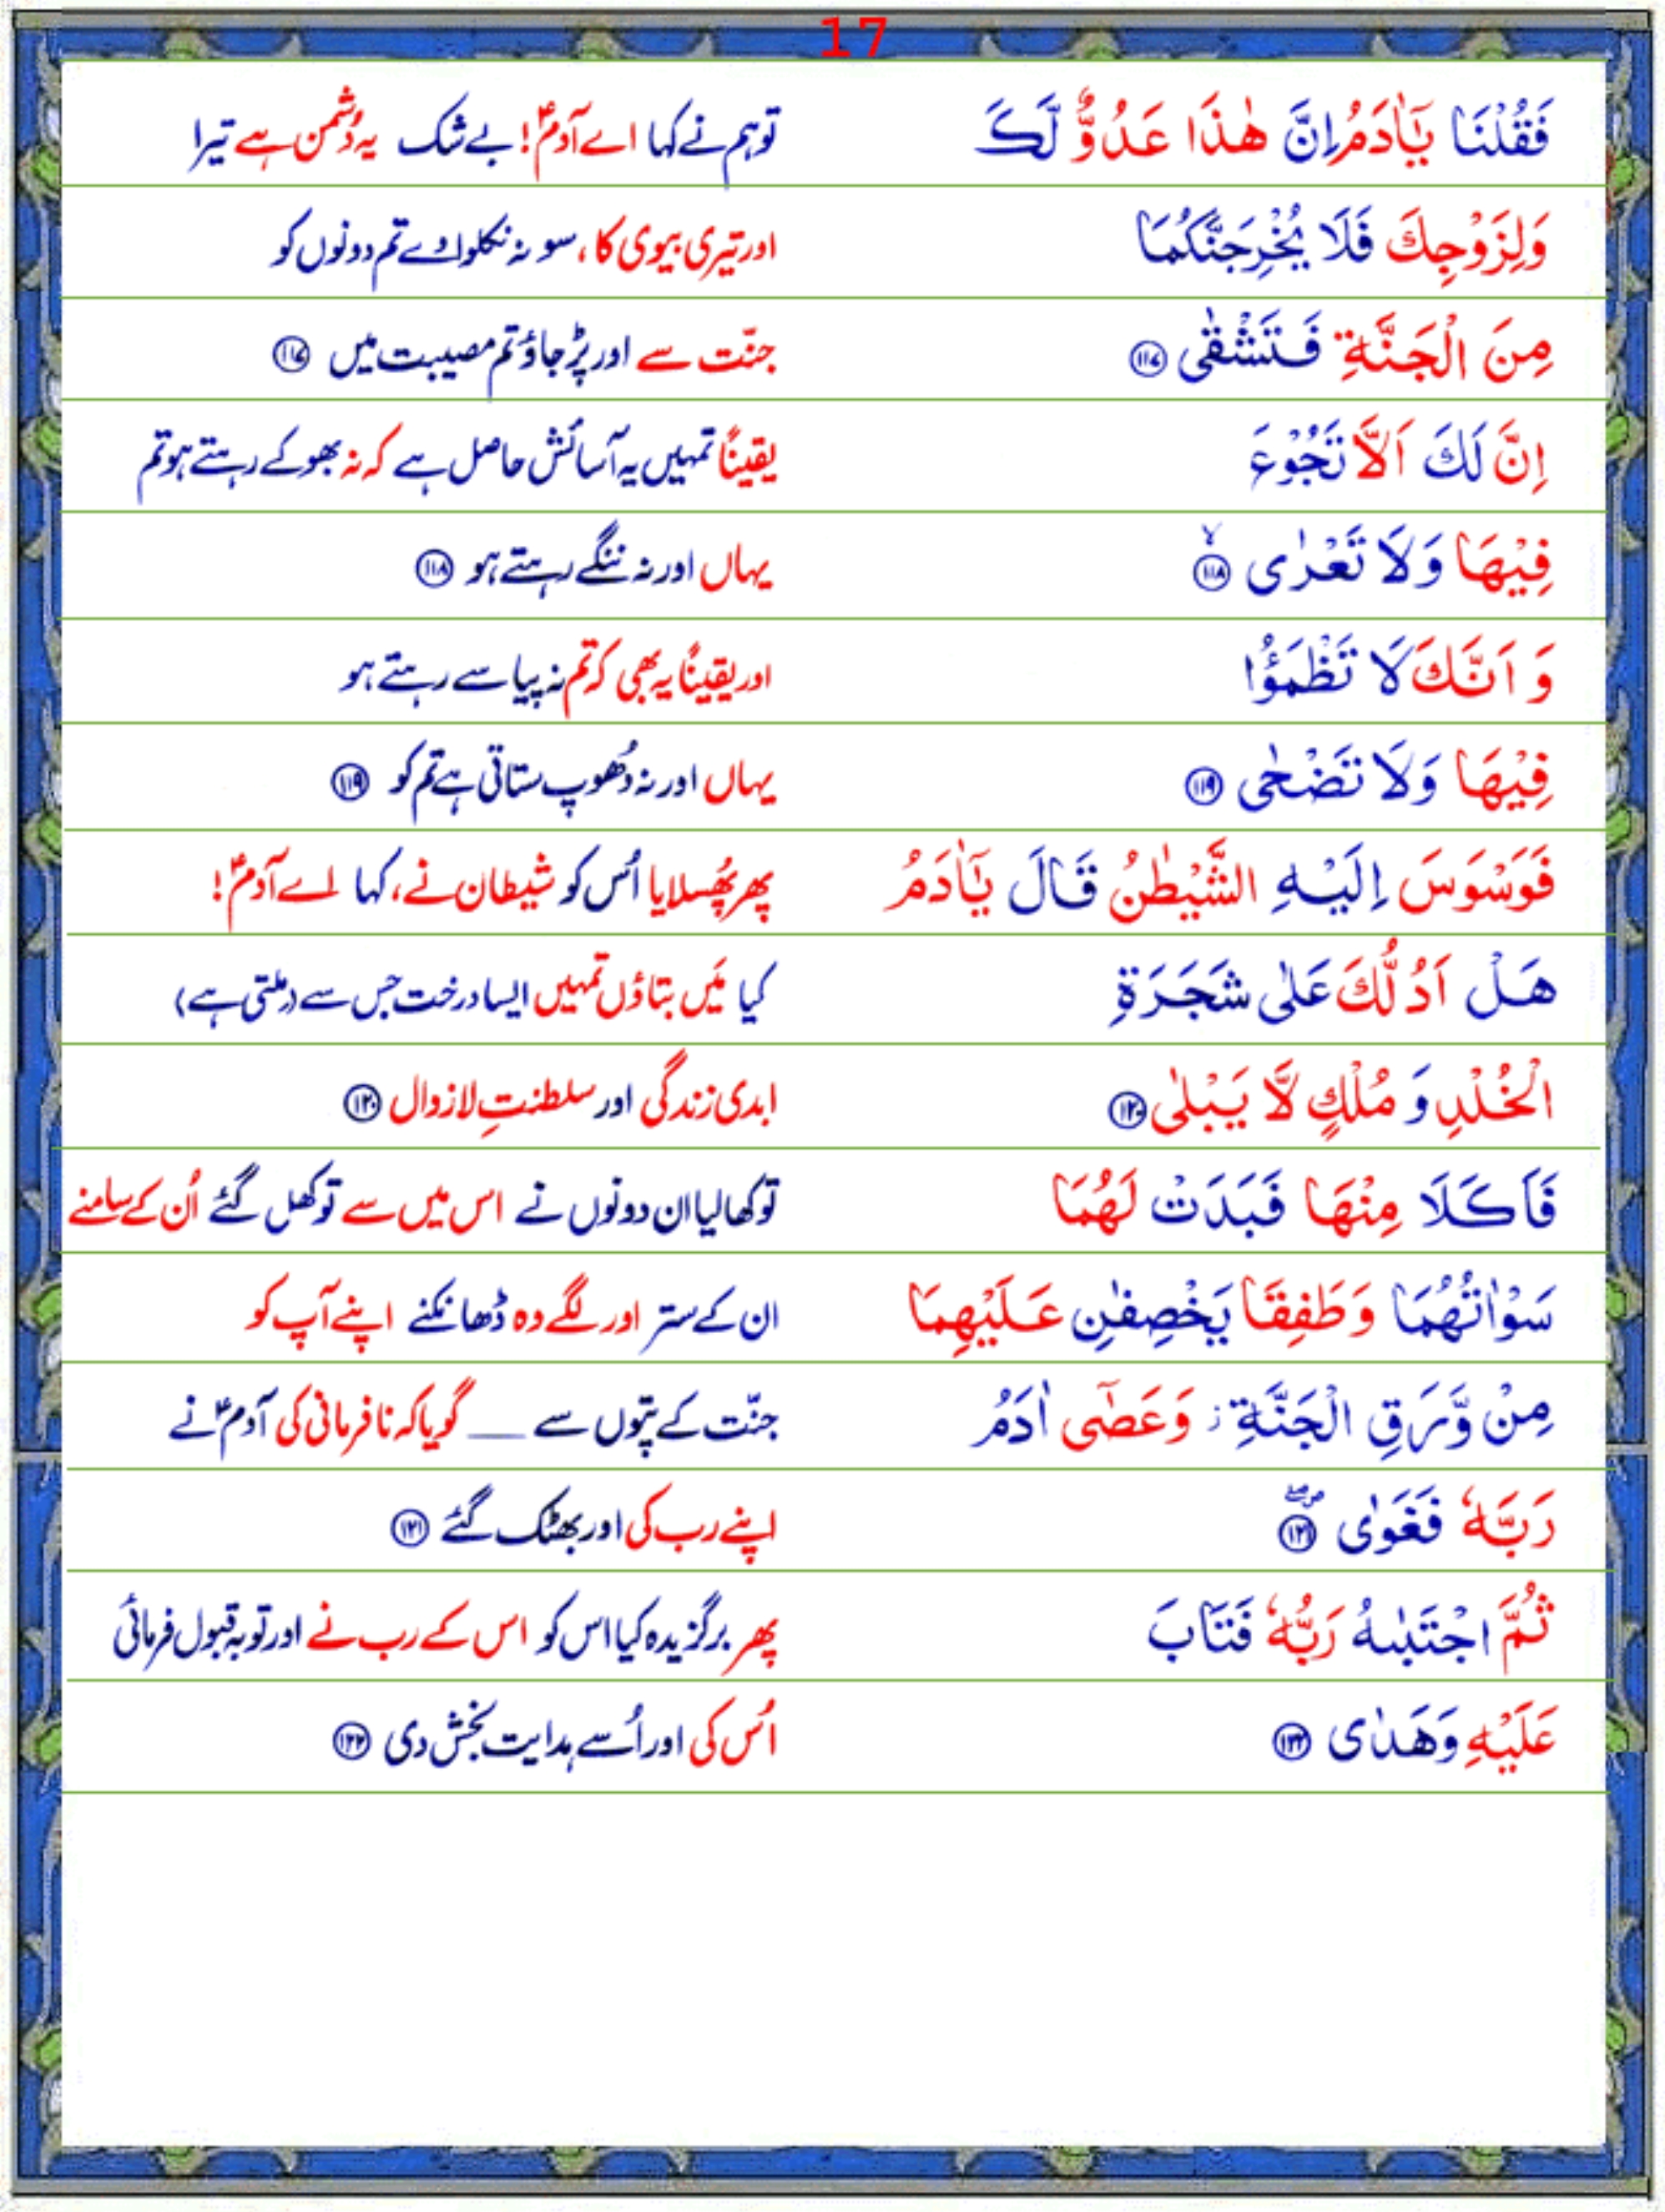 17
فَقُلْنَا يٰۤاٰدَمُ اِنَّ هٰذَا عَدُوٌّ لَّكَ تو ہم نے کہا اے آدمؑ! بے شک یہ دُشمن ہے تیرا
وَلِزَوْجِكَ فَلَا يُخْرِجَنَّكُمَا اور تیری بیوی کا، سو نہ نکلوا دے تم دونوں کو
مِنَ الْجَنَّةِ فَتَشْقٰى ۝۱۱۷ جنّت سے اور پڑ جاؤ تم مصیبت میں ۝۱۱۷
اِنَّ لَكَ اَلَّا تَجُوْعَ یقیناً تمہیں یہ آسائش حاصل ہے کہ نہ بھوکے رہتے ہو تم
فِيْهَا وَلَا تَعْرٰى ۝۱۱۸ۙ یہاں اور نہ ننگے رہتے ہو ۝۱۱۸
وَ اَنَّكَ لَا تَظْمَؤُا اور یقیناً یہ بھی کہ تم نہ پیاسے رہتے ہو
فِيْهَا وَلَا تَضْحٰى ۝۱۱۹ یہاں اور نہ دُھوپ ستاتی ہے تم کو ۝۱۱۹
فَوَسْوَسَ اِلَيْهِ الشَّيْطٰنُ قَالَ يٰۤاٰدَمُ پھر پُھسلایا اُس کو شیطان نے، کہا اے آدمؑ!
هَلْ اَدُلُّكَ عَلٰى شَجَرَةِ کیا مَیں بتاؤں تمہیں ایسا درخت جس سے (ملتی ہے)
الْخُلْدِ وَ مُلْكٍ لَّا يَبْلٰى ۝۱۲۰ ابدی زندگی اور سلطنتِ لازوال ۝۱۲۰
فَاَكَلَا مِنْهَا فَبَدَتْ لَهُمَا تو کھا لیا ان دونوں نے اس میں سے تو کھل گئے اُن کے سامنے
سَوْاٰتُهُمَا وَطَفِقَا يَخْصِفٰنِ عَلَيْهِمَا ان کے ستر اور لگے وہ ڈھانکنے اپنے آپ کو
مِنْ وَّرَقِ الْجَنَّةِ ز وَعَصٰۤى اٰدَمُ جنّت کے پتّوں سے ___ گویا کہ نافرمانی کی آدمؑ نے
رَبَّهٗ فَغَوٰى ۝۱۲۱ۖ اپنے رب کی اور بھٹک گئے ۝۱۲۱
ثُمَّ اجْتَبٰىهُ رَبُّهٗ فَتَابَ پھر برگزیدہ کیا اس کو اس کے رب نے اور توبہ قبول فرمائی
عَلَيْهِ وَهَدٰى ۝۱۲۲ اُس کی اور اُسے ہدایت بخش دی ۝۱۲۲